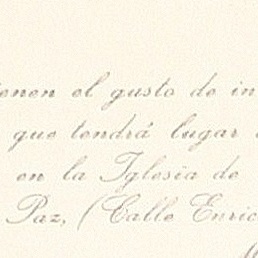 tienen el gusto de in
que tendrá lugar
en la Iglesia de
Paz, (Calle Enric